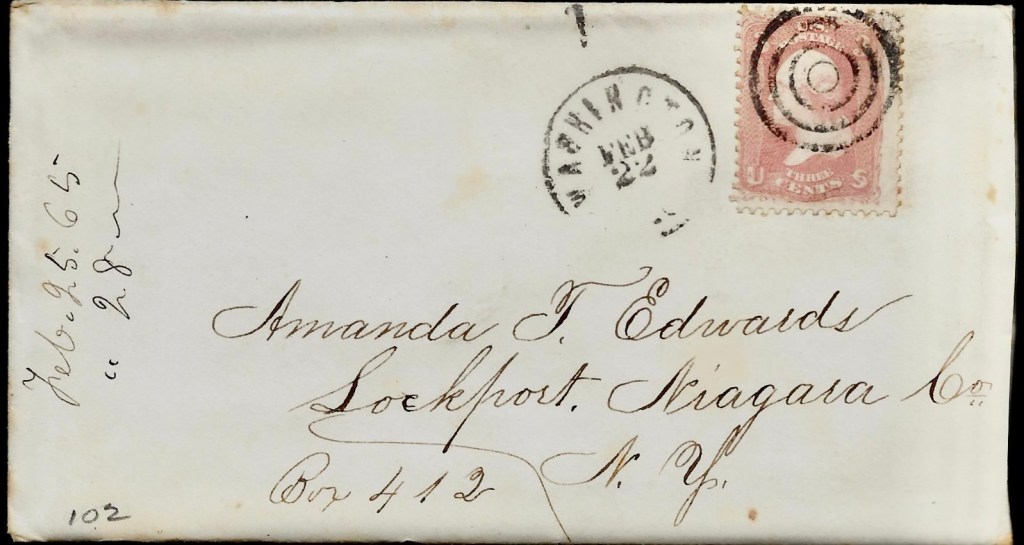 1
WASHINGTON
FEB
22
U.S.
POSTAGE
THREE
CENTS
U S
Amanda T. Edwards
Lockport, Niagara Co.
N. Y.
Box 412
Feb. 25. 65
" 28 "
102